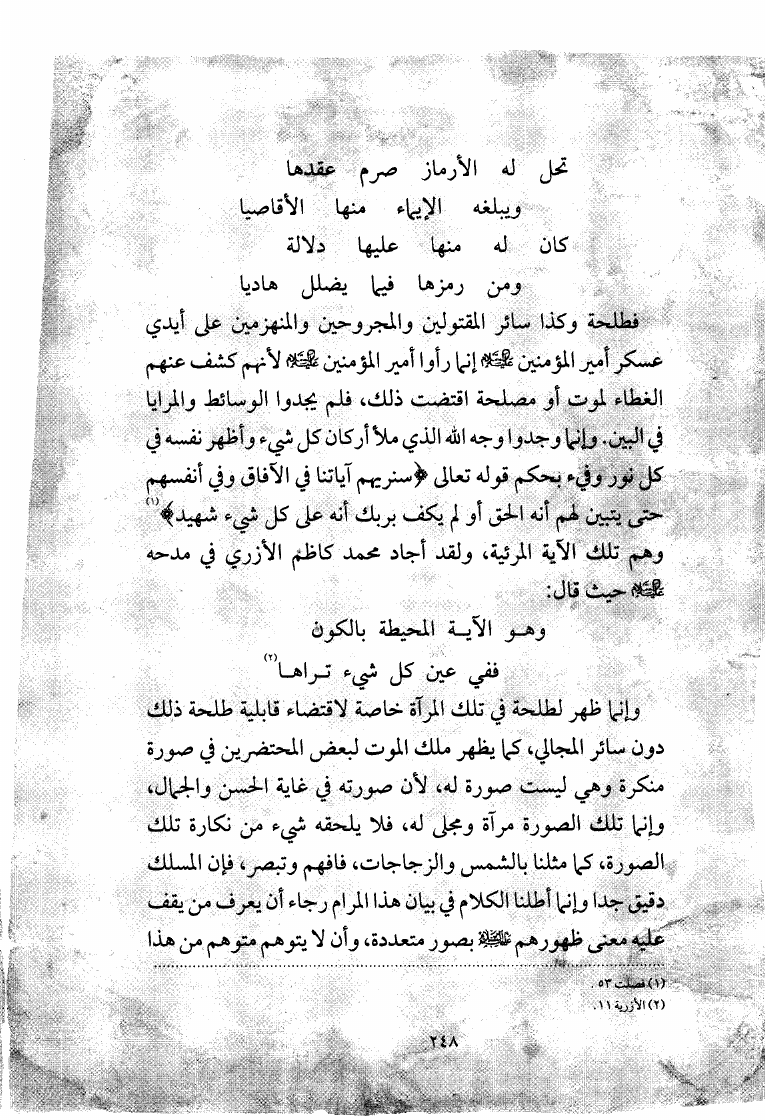 تحل له الأرماز صرم عقدها
ويبلغه الإيماء منها الأقاصيا
كان له منها عليها دلالة
ومن رمزها فيما يضلل هاديا
فطلحة وكذا سائر المقتولين والمجروحين والمنهزمين على أيدي
عسكر أمير المؤمنين إنما رأوا أمير المؤمنين لأنهم كشف عنهم
الغطاء لموت أو مصلحة اقتضت ذلك، فلم يجدوا الوسائط والمرايا
في البين. وإنما وجدوا وجه الله الذي ملأ أركان كل شيء وأظهر نفسه في
كل نور وفيء بحكم قوله تعالى ﴿سنريهم آياتنا في الآفاق وفي أنفسهم
حتى يتبين لهم أنه الحق أو لم يكف بربك أنه على كل شيء شهيد﴾(١)
وهم تلك الآية المرئية، ولقد أجاد محمد كاظم الأزري في مدحه
حيث قال:
وهـو الآيـة المحيطة بالكون
ففي عين كل شيء تـراهـا(٢)
وإنما ظهر لطلحة في تلك المرآة خاصة لاقتضاء قابلية طلحة ذلك
دون سائر المجالي، كما يظهر ملك الموت لبعض المحتضرين في صورة
منكرة وهي ليست صورة له، لأن صورته في غاية الحسن والجمال،
وإنما تلك الصورة مرآة ومجلى له، فلا يلحقه شيء من نكارة تلك
الصورة، كما مثلنا بالشمس والزجاجات، فافهم وتبصر، فإن المسلك
دقيق جدا وإنما أطلنا الكلام في بيان هذا المرام رجاء أن يعرف من يقف
عليه معنى ظهورهم بصور متعددة، وأن لا يتوهم متوهم من هذا
(١) فصلت ٥٣.
(٢) الأزرية ١١.
٢٤٨